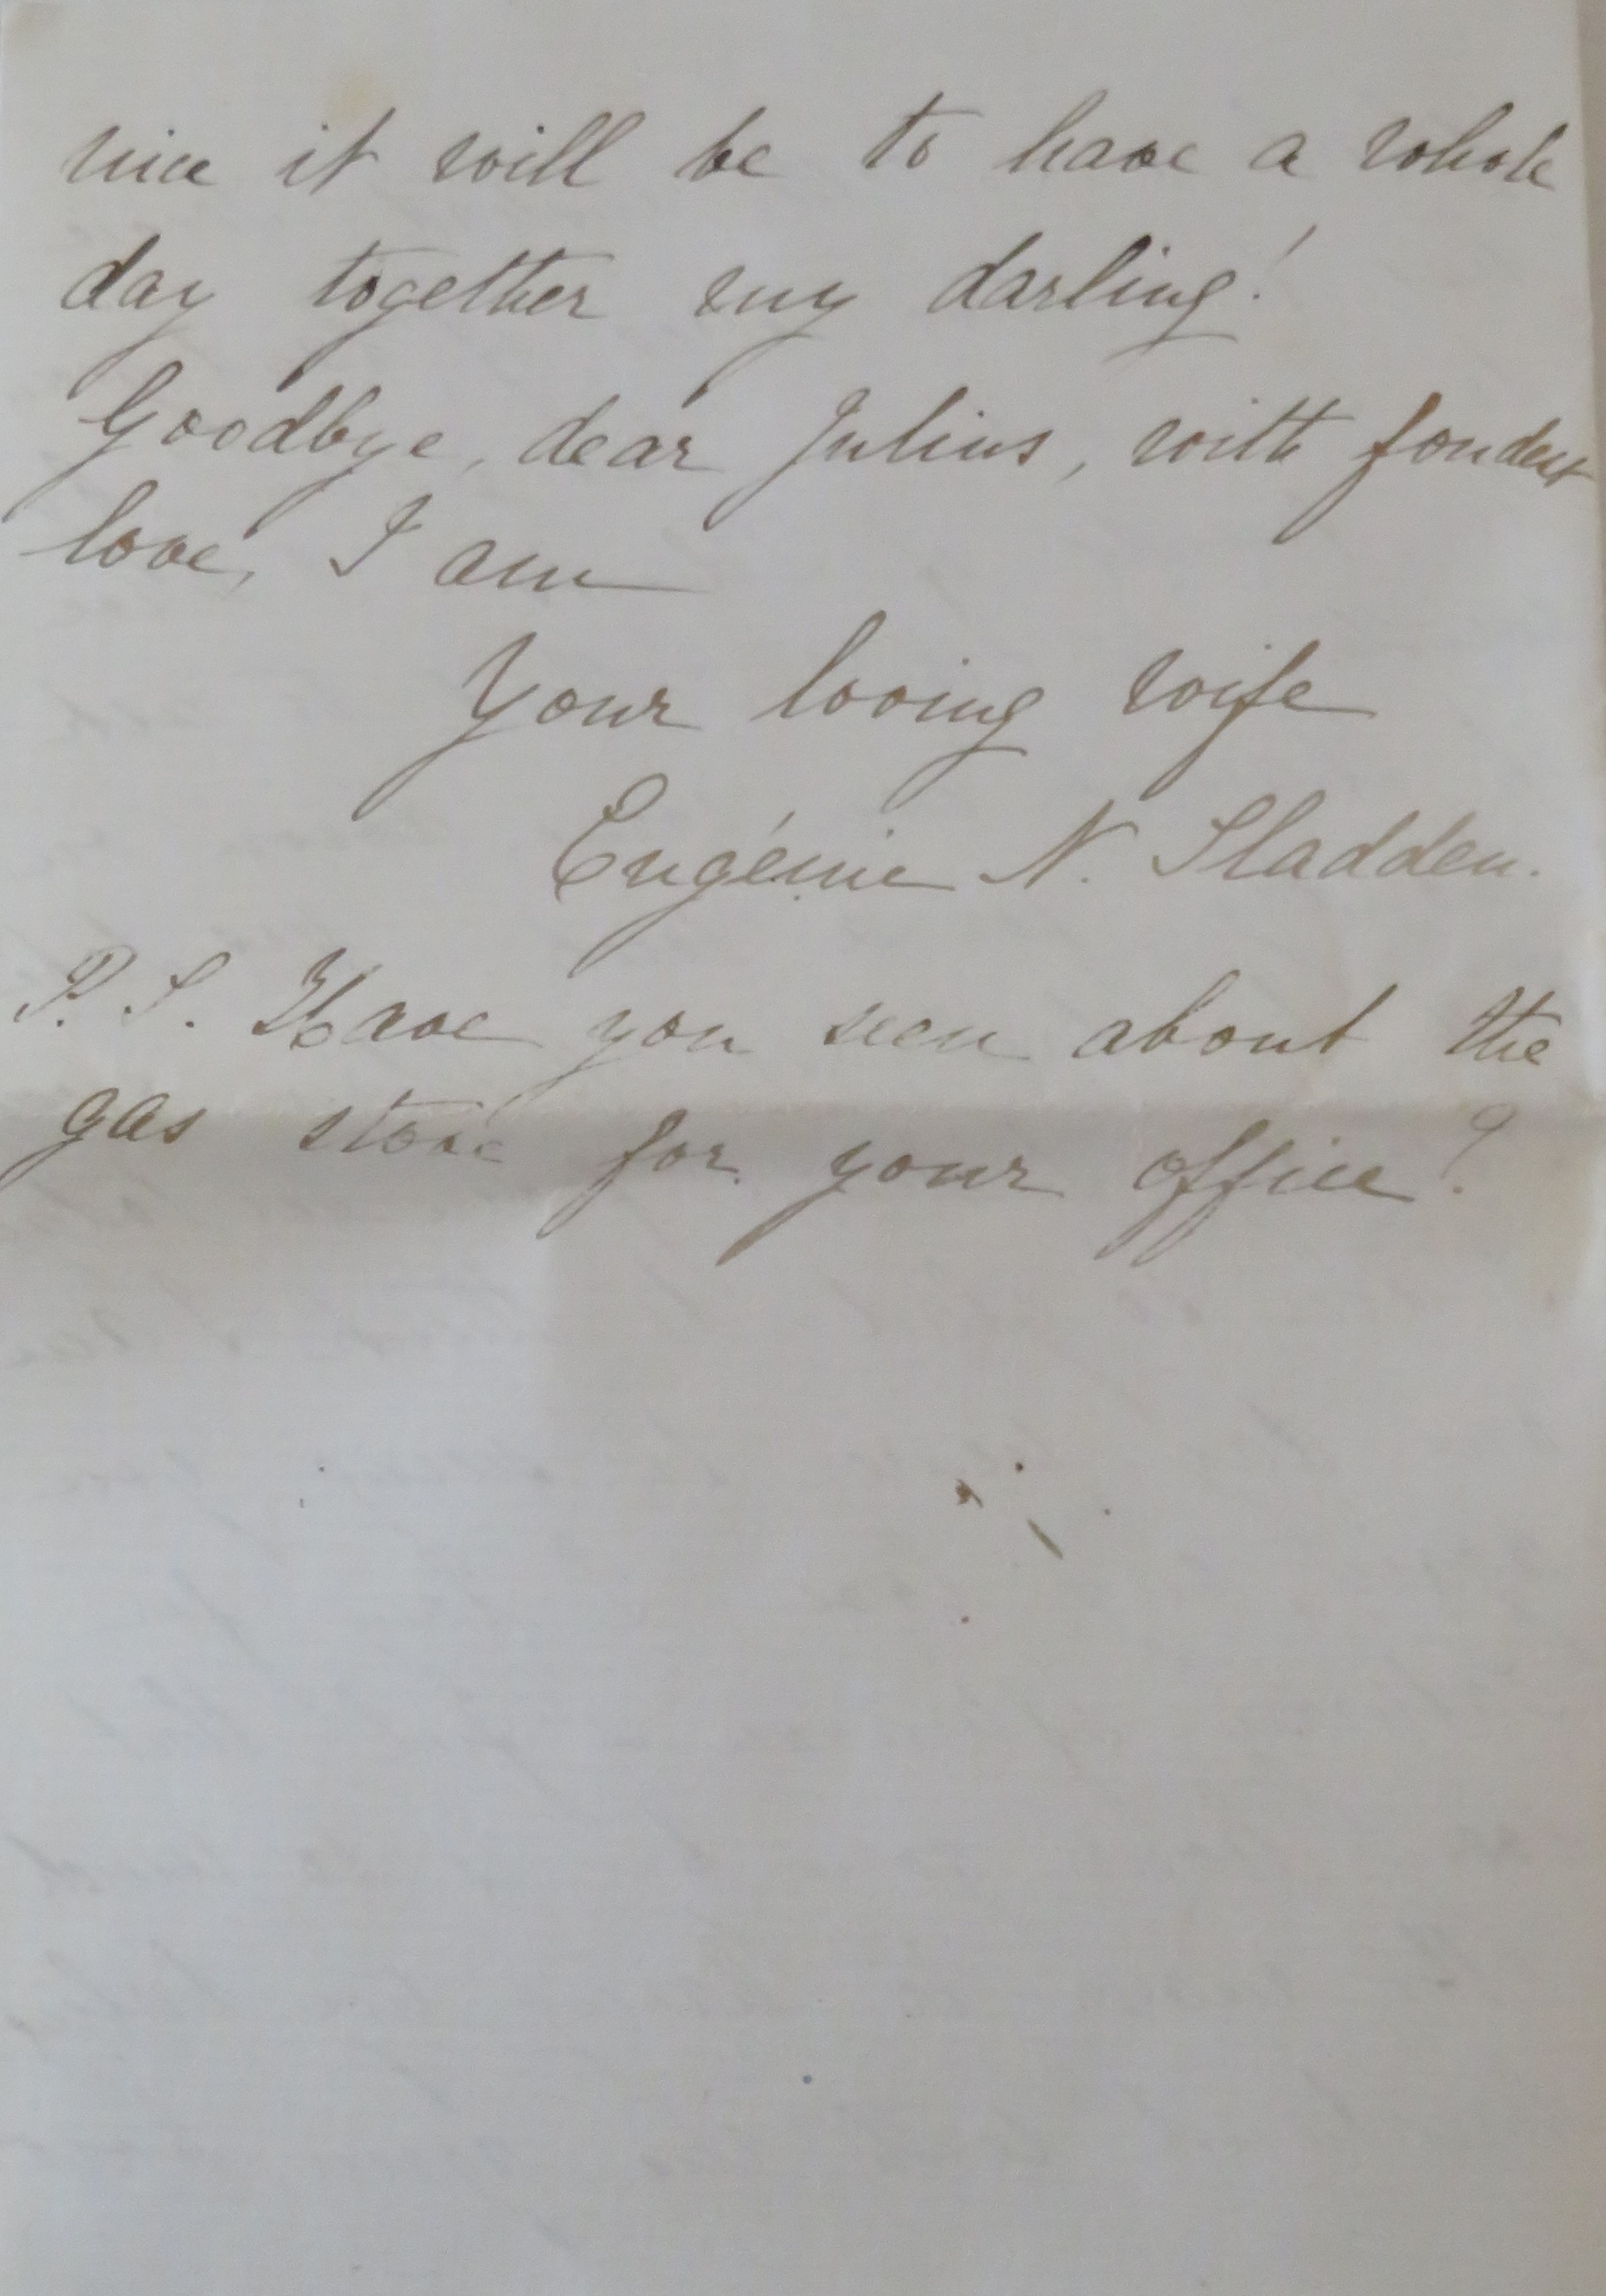 nice it will be to have a whole
day together my darling!
Goodbye, dear Julius, with fondest
love, I am
Your loving wife
Eugénie N. Sladden.
P. S. Have you seen about the
gas stove for your office?